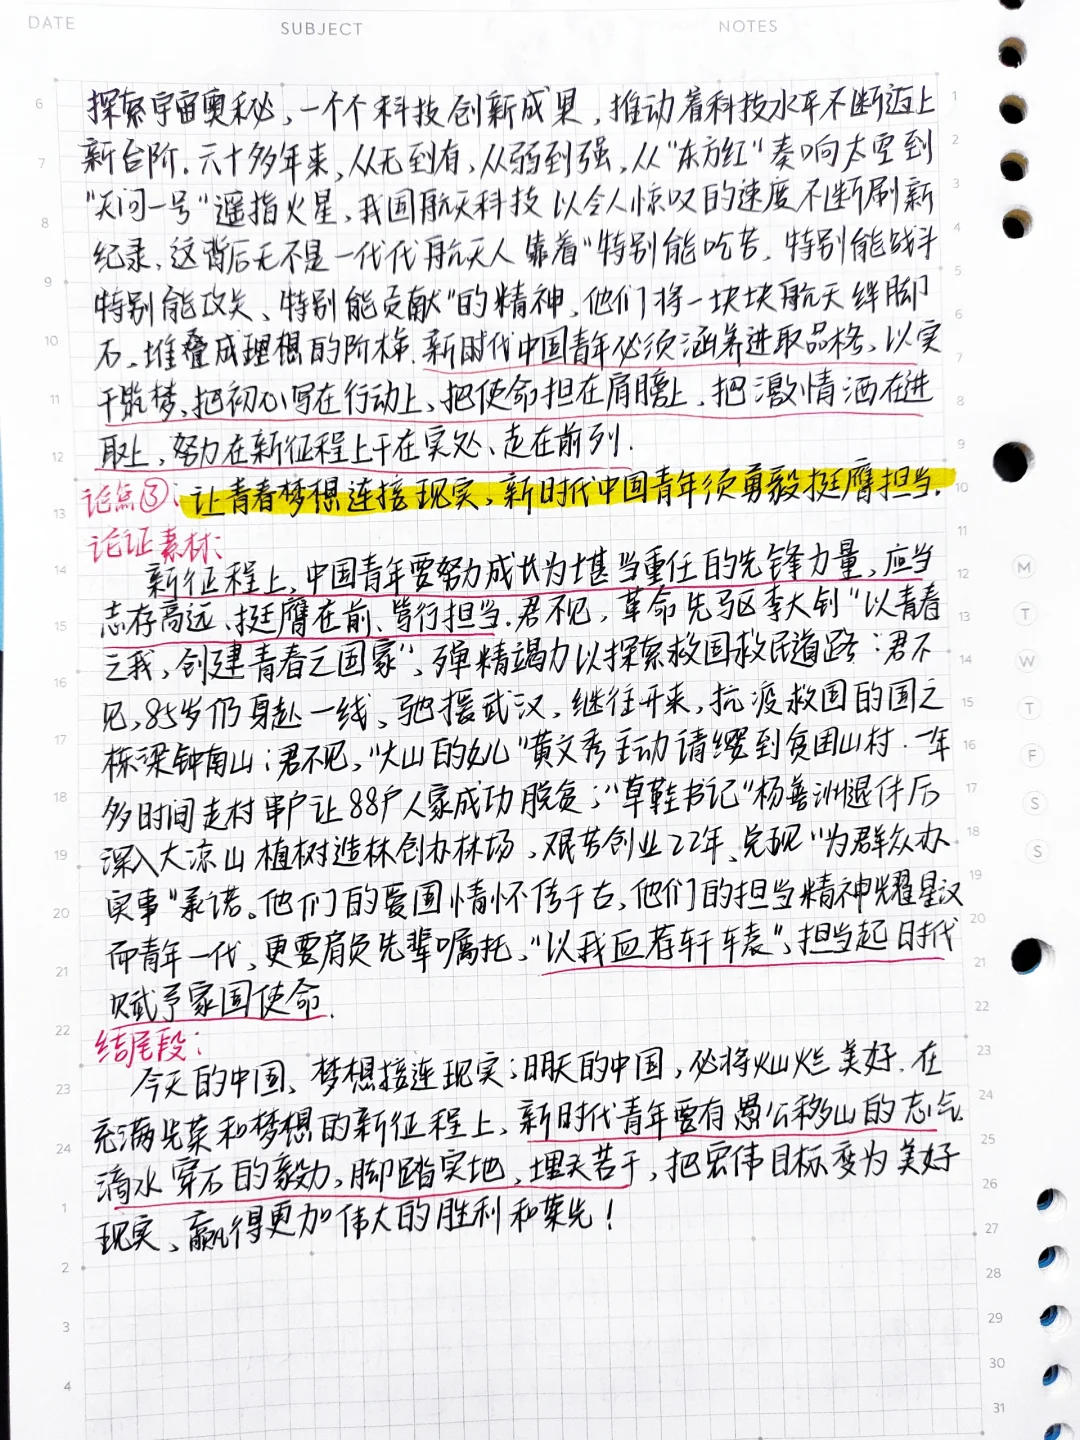 DATE SUBJECT NOTES
探索宇宙奥秘,一个个科技创新成果,推动着科技水平不断迈上
新台阶.六十多年来,从无到有,从弱到强,从"东方红"奏响太空到
"天问一号"遥指火星,我国航天科技以令人惊叹的速度不断刷新
纪录,这背后无不是一代代航天人靠着"特别能吃苦、特别能战斗
特别能攻关、特别能贡献"的精神,他们将一块块航天绊脚
石,堆叠成理想的阶梯.新时代中国青年必须涵养进取品格,以实
干筑梦,把初心写在行动上、把使命担在肩膀上、把激情洒在进
取上,努力在新征程上干在实处、走在前列.
论点③:让青春梦想连接现实,新时代中国青年须勇毅挺膺担当.
论证素材:
新征程上,中国青年要努力成长为堪当重任的先锋力量,应当
志存高远、挺膺在前、笃行担当.君不见,革命先驱李大钊"以青春
之我,创建青春之国家",殚精竭力以探索救国救民道路;君不
见,85岁仍身赴一线、驰援武汉,继往开来,抗疫救国的国之
栋梁钟南山;君不见,"大山的女儿"黄文秀主动请缨到贫困山村.一年
多时间走村串户让88户人家成功脱贫;"草鞋书记"杨善洲退休后
深入大凉山植树造林创办林场,艰苦创业22年、兑现"为群众办
实事"承诺。他们的爱国情怀传千古,他们的担当精神耀星汉
而青年一代,更要肩负先辈嘱托,"以我血荐轩辕",担当起时代
赋予家国使命.
结尾段:
今天的中国,梦想接连现实;明天的中国,必将灿烂美好.在
充满光荣和梦想的新征程上,新时代青年要有愚公移山的志气
滴水穿石的毅力,脚踏实地,埋头苦干,把宏伟目标变为美好
现实、赢得更加伟大的胜利和荣光!
6
7
8
9
10
11
12
13
14
15
16
17
18
19
20
21
22
23
24
1
2
3
4
1
2
3
4
5
6
7
8
9
10
11
12
13
14
15
16
17
18
19
20
21
22
23
24
25
26
27
28
29
30
31
M
T
W
T
F
S
S